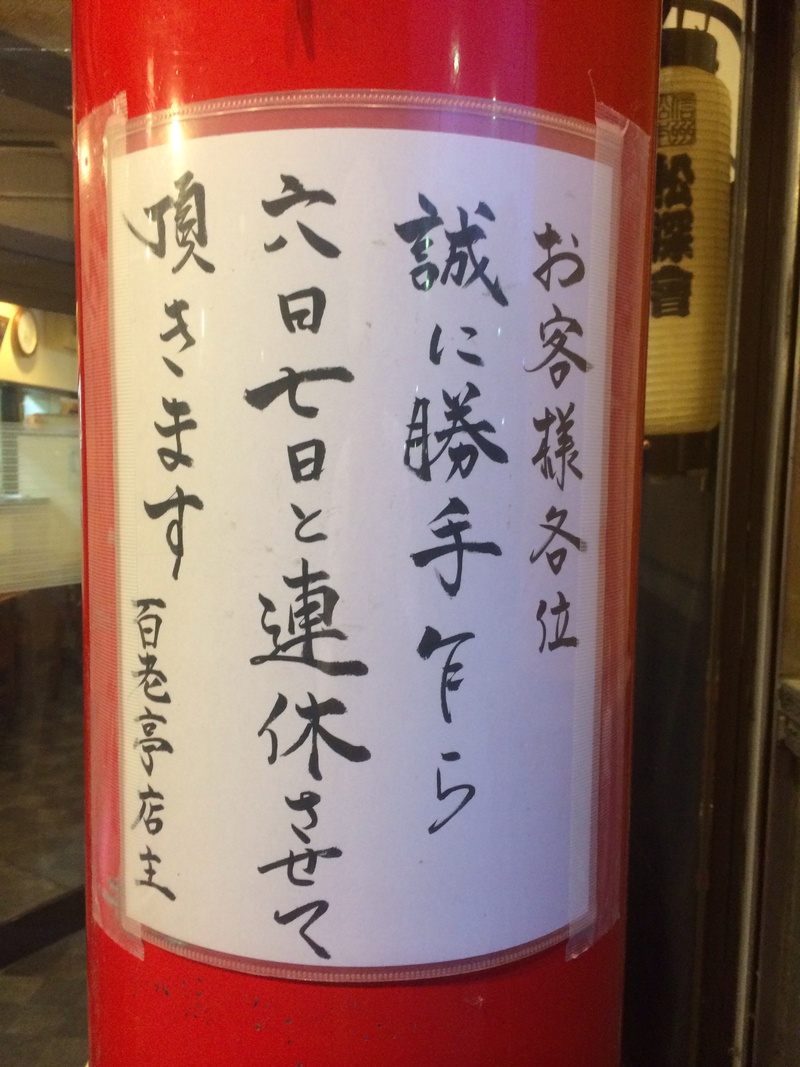 お客様各位
誠に勝手乍ら
六日七日と連休させて
頂きます
百老亭店主
信州
松深會